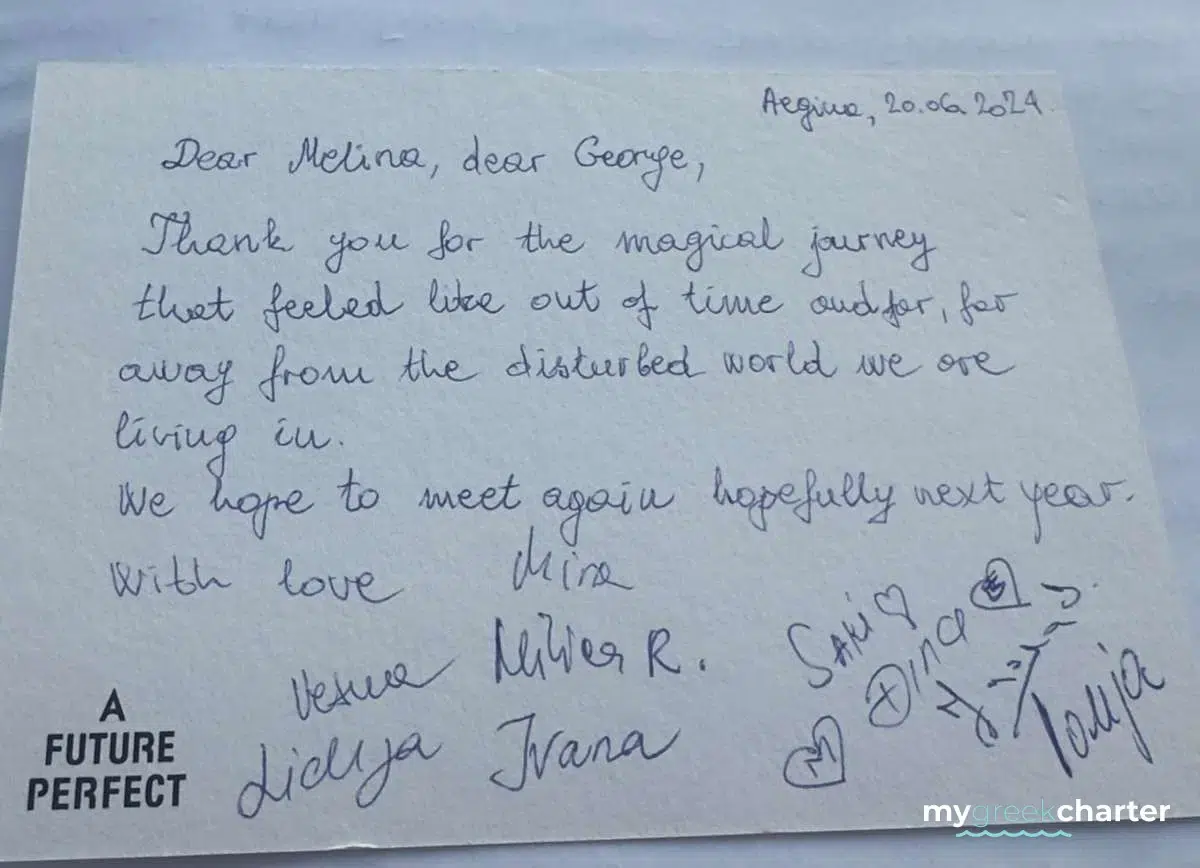 Aegina, 20.06.2024.
Dear Melina, dear George,
Thank you for the magical journey
that feeled like out of time and far, far
away from the disturbed world we are
living in.
We hope to meet again hopefully next year.
With love Mira
Vesna Milica R. SANI Dina
Lidija Ivana Tanja
A
FUTURE
PERFECT
mygreekcharter